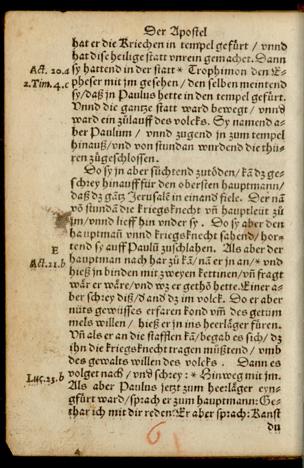 Der Apostel
hat er die Kriechen in tempel gefürt / vnnd
hat dise heilige statt vnrein gemachet. Dann
Act. 20.a sy hattend in der statt * Trophimon den E-
2. Tim. 4.c pheser mit jm gesehen / den selben meintend
sy / daß jn Paulus hette in den tempel gefürt.
Vnnd die gantze statt ward bewegt / vnnd
ward ein zůlauff des volcks. Sy namend a-
ber Paulum / vnnd zugend jn zum tempel
hinauß / vnd von stundan wurdend die thü-
ren zůgeschlossen.
Do sy jn aber sůchtend zutöden / kā dz ge-
schrey hinauff für den obersten hauptmann /
daß dz gātz Jerusalē in einand fiele. Der nā
vō stundā die kriegsknecht vñ hauptleüt zů
jm / vnnd lieff hin vnder sy. Do sy aber den
hauptmañ vnnd kriegsknecht sahend / hor-
E tend sy auff Paulū zuschlahen. Als aber der
Act. 21.b hauptman nach har zů kā / nā er jn an / * vnd
hieß jn binden mit zweyen kettinen / vñ fragt
wär er wäre / vnd wz er gethō hette. Einer a-
ber schrey diß / d and dz im volck. Do er aber
nüts gewüsses erfaren kond vm̄ des getüm
mels willen / hieß er jn ins heerläger füren.
Vñ als er an die stafflen kā / begab es sich / dz
jhn die kriegsknecht tragen müßtend / vmb
des gewalts willen des volcks. Dann es
Luc. 23.b volget nach / vnd schrey: * Hinweg mit jm.
Als aber Paulus jetzt zum heerläger eyn-
gfürt ward / sprach er zum hauptmann: Ge-
thar ich mit dir reden: Er aber sprach: Kanst
du
6